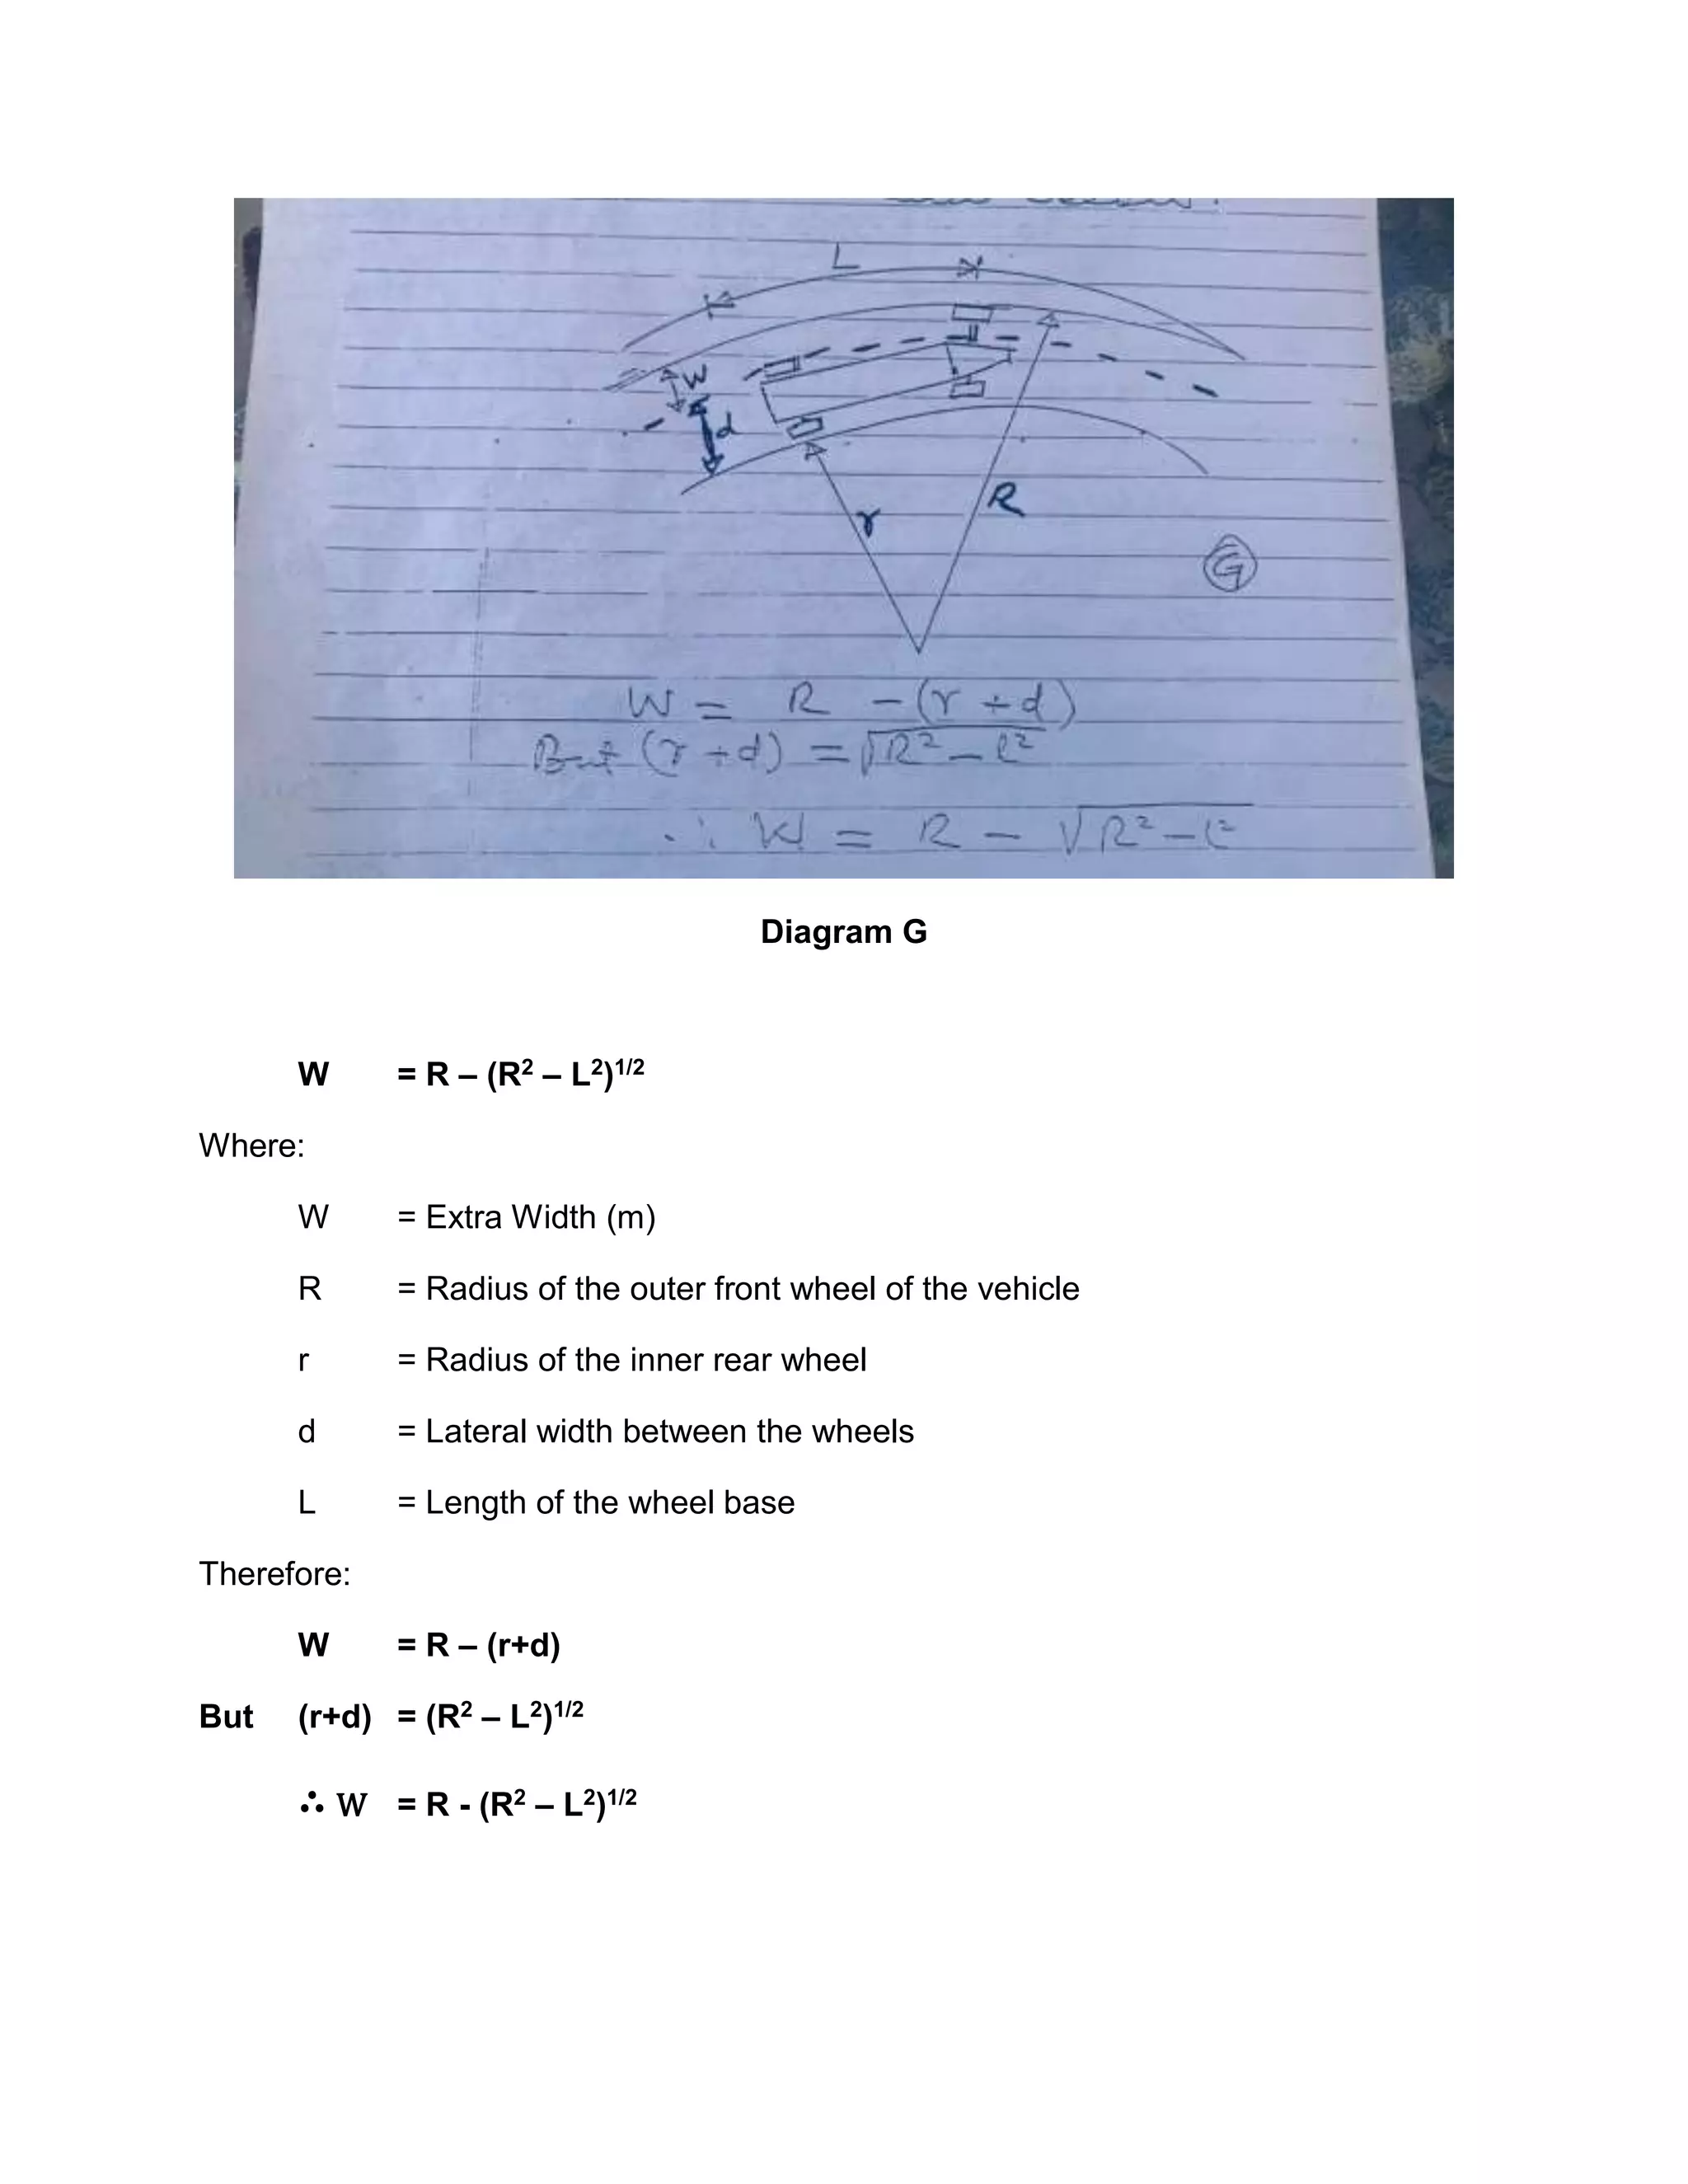 L
W
d
r
R
G
W = R - (r + d)
But (r + d) = √R² - L²
∴ W = R - √R² - L²
Diagram G
W = R – (R² – L²)^1/2
Where:
W = Extra Width (m)
R = Radius of the outer front wheel of the vehicle
r = Radius of the inner rear wheel
d = Lateral width between the wheels
L = Length of the wheel base
Therefore:
W = R – (r+d)
But (r+d) = (R² – L²)^1/2
∴ W = R - (R² – L²)^1/2